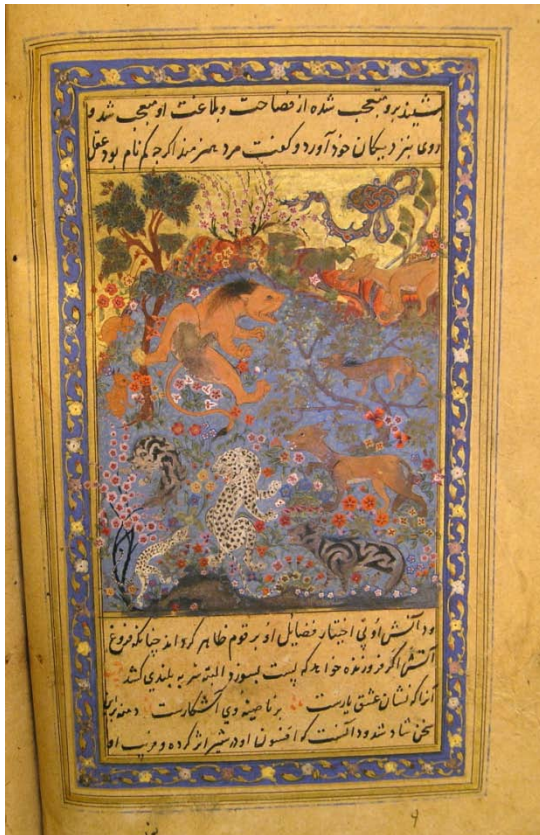 بشنید برو متعجب شده از فصاحت و بلاغت او متعجب شد و
روی بنزدیکان خود آورد و گفت مرد هنرمند اگرچه گم نام بود عقل
و دانش او بی اختیار فضایل او بر قوم ظاهر گرداند چنانکه فروغ
آتش اگر فروزنده خواهد که پست بسوزد البته سر به بلندی کشد
آنرا که نشان عشق یارست بر ناصیه وی آشکارست دمنه باین
سخن شاد شد و دانست که افسون او در شیر اثر کرده و فریب او